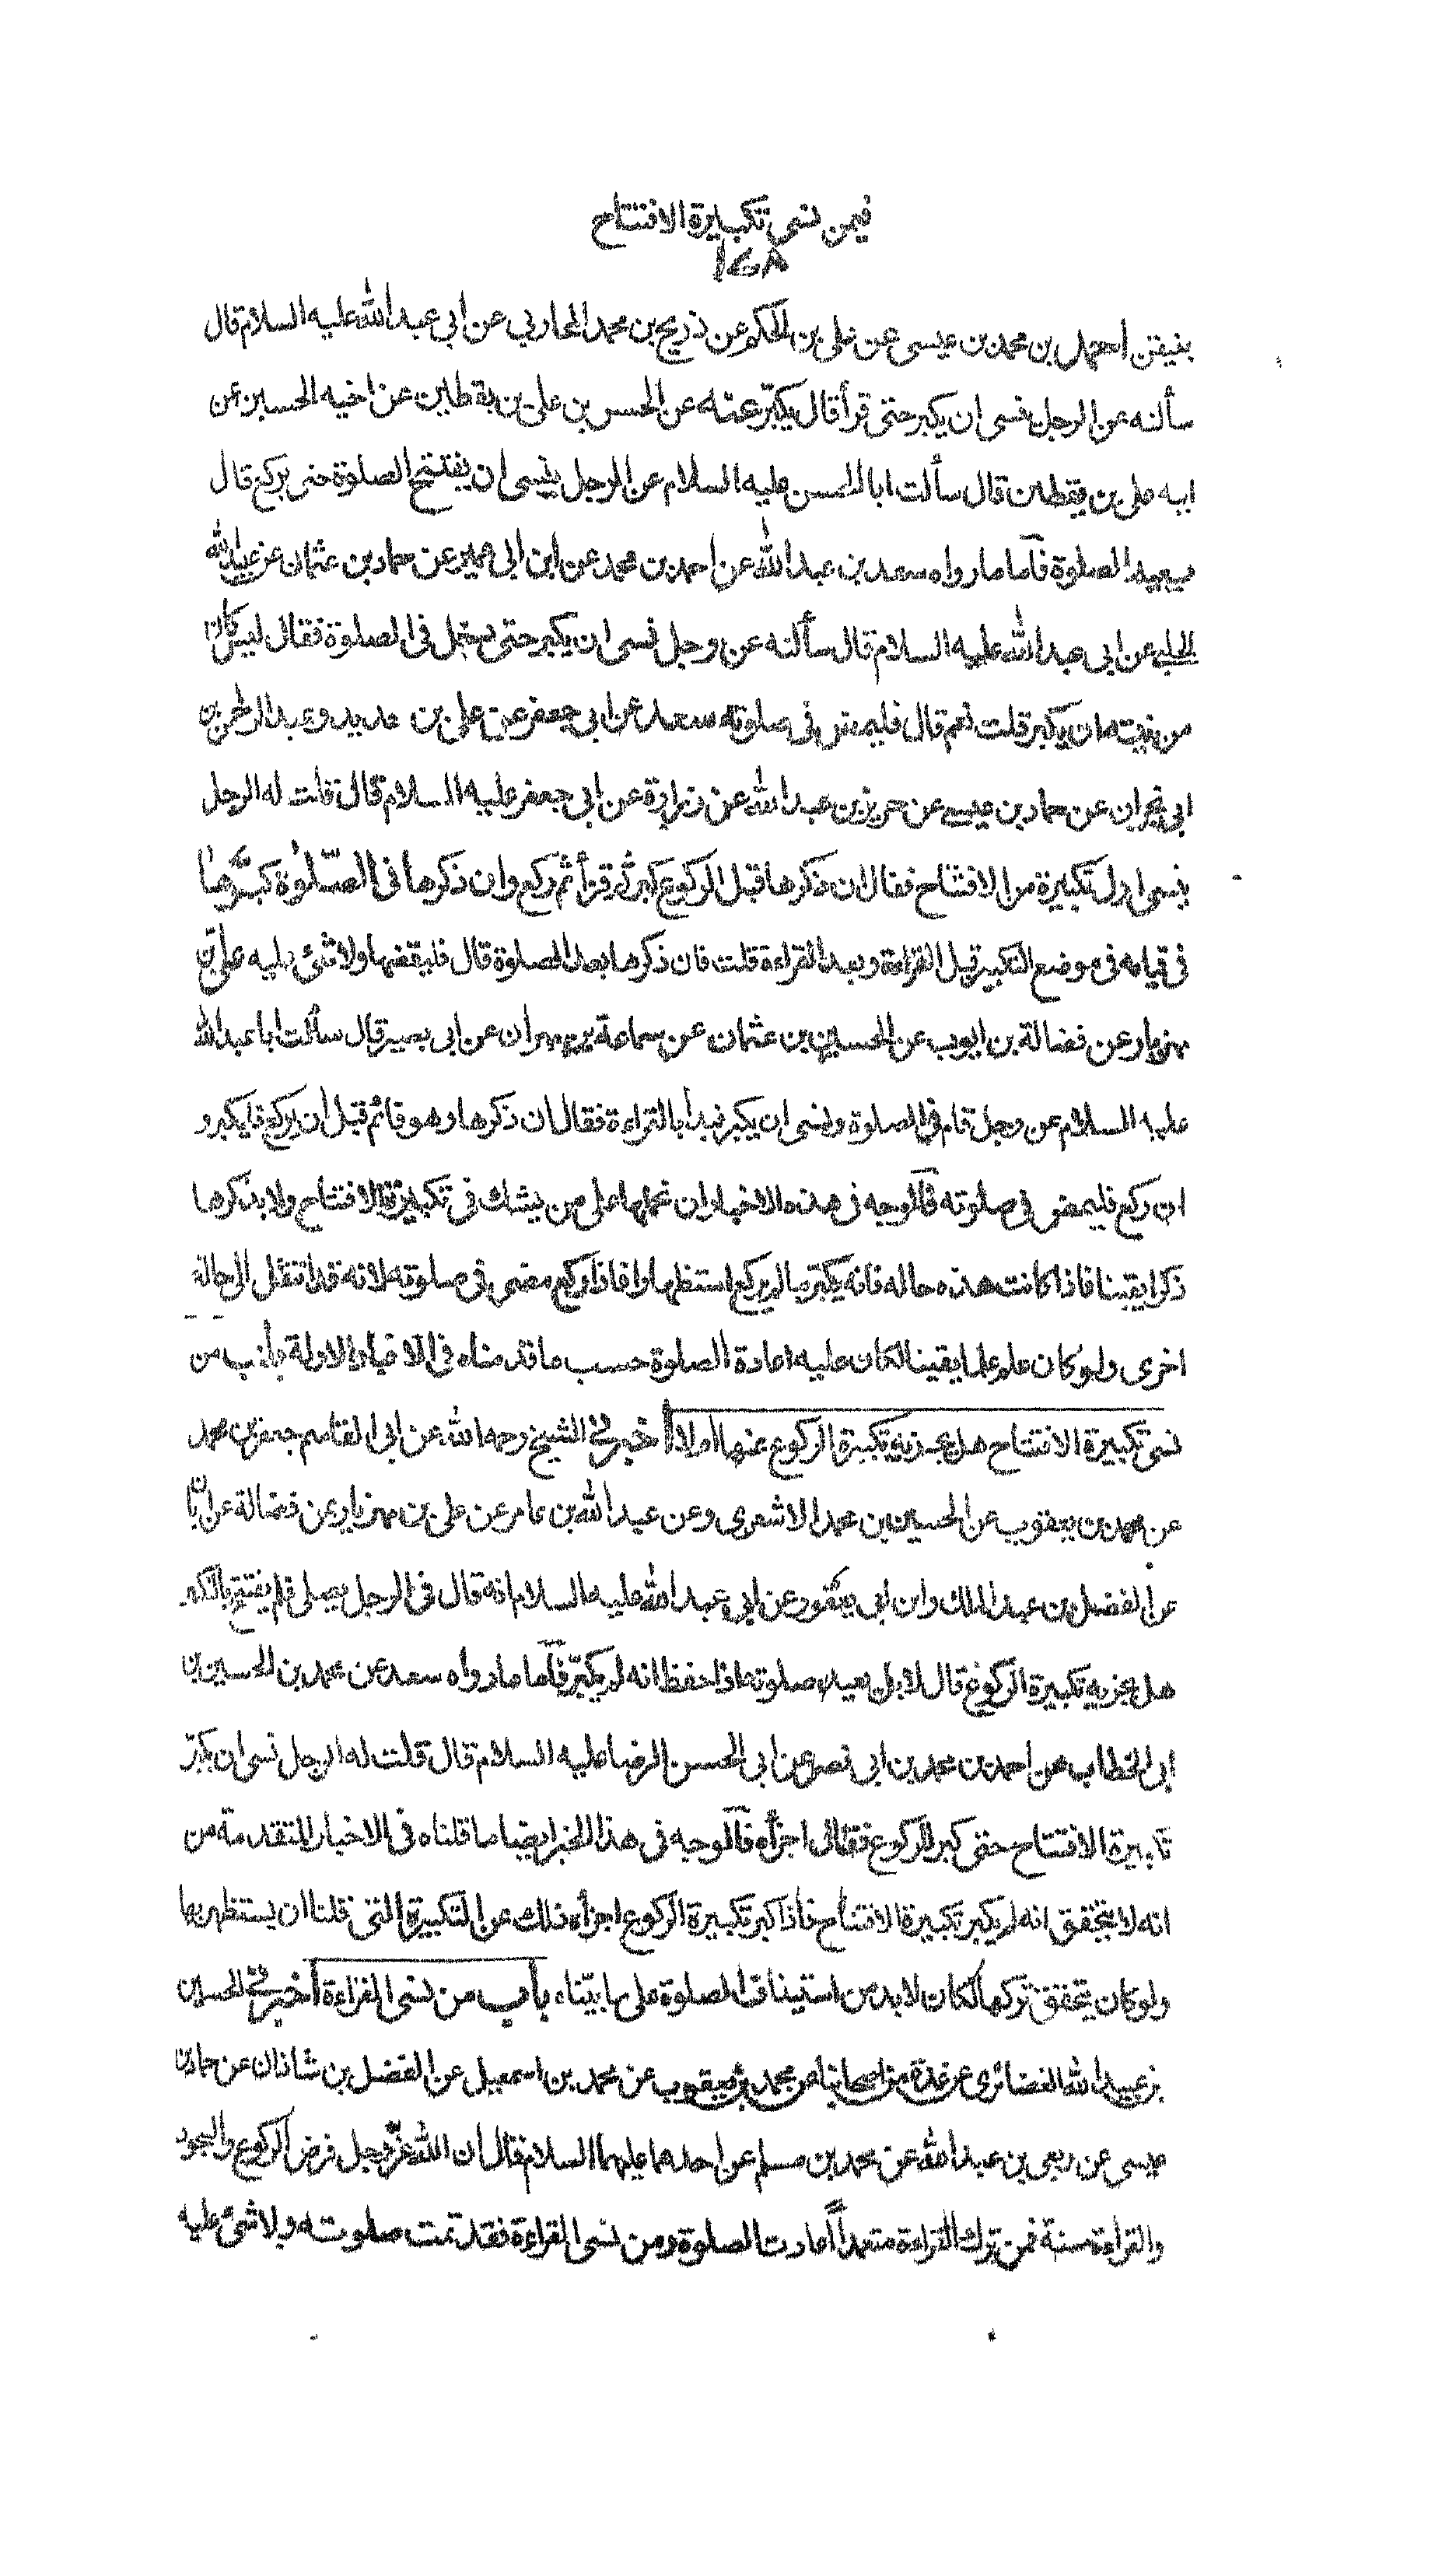 فيمن نسى تكبيرة الافتتاح
١٤٨
بنيقن احمد بن محمد بن عيسى عن على بن الحكم عن ذريح بن محمد المحاربي عن ابي عبد الله عليه السلام قال
سألته عن الرجل ينسى ان يكبر حتى قرأ قال يكبّر عنه عن الحسن بن على بن يقطين عن اخيه الحسين عن
ابيه على بن يقطين قال سألت ابا الحسن عليه السلام عن الرجل ينسى ان يفتتح الصلوة حتى يركع قال
يعيد الصلوة فآما ما رواه سعد بن عبد الله عن احمد بن محمد عن ابن ابى عمير عن حماد بن عثمان عن عبيد الله
الحلبي عن ابي عبد الله عليه السلام قال سألته عن رجل نسى ان يكبر حتى دخل فى الصلوة فقال اليس كان
من نيته ان يكبر قلت نعم قال فليمض فى صلوته سعد عن ابي جعفر عن على بن حديد وعبد الرحمن بن
ابى نجران عن حماد بن عيسى عن حريز بن عبد الله عن زرارة عن ابى جعفر عليه السلام قال قلت له الرجل
ينسى اول تكبيرة من الافتتاح فقال ان ذكرها قبل الركوع كبر ثم قرأ ثم ركع وان ذكرها فى الصّلوة كبّرها
فى قيامه فى موضع التكبير قبل القراءة وبعد القراءة قلت فان ذكرها بعد الصلوة قال فليقضها ولا شئ عليه على بن
مهزيار عن فضالة بن ايوب عن الحسين بن عثمان عن سماعة بن مهران عن ابى بصير قال سألت ابا عبد الله
عليه السلام عن رجل قام فى الصلوة ونسى ان يكبر فبدأ بالقراءة فقال ان ذكرها وهو قائم قبل ان يركع فليكبر و
ان ركع فليمض فى صلوته فآلوجه فى هذه الاخبار ان نحملها على من يشك فى تكبيرة الافتتاح ولا يذكرها
ذكرا يقينا فاذا كانت هذه حاله فانه يكبّر ما لم يركع استظهارا فاذا ركع مضى فى صلوته لانه قد انتقل الى حالة
اخرى ولو كان علم علما يقينا لكان عليه اعادة الصلوة حسب ما قدمناه فى الاخبار الاولة باب من
نسى تكبيرة الافتتاح هل يجزيه تكبيرة الركوع عنها ام لا اخبرنى الشيخ رحمه الله عن ابى القاسم جعفر بن محمد
عن محمد بن يعقوب عن الحسين بن محمد الاشعرى وعن عبد الله بن عامر عن على بن مهزيار عن فضالة عن ابان
عن الفضل بن عبد الملك وابن ابى يعفور عن ابى عبد الله عليه السلام انه قال فى الرجل يصلى فلم يفتتح بالتكبير
هل يجزيه تكبيرة الركوع قال لا بل يعيد صلوته اذا حفظ انه لم يكبّر فآما ما رواه سعد عن محمد بن الحسين بن
ابى الخطاب عن احمد بن محمد بن ابى نصر عن ابى الحسن الرضا عليه السلام قال قلت له الرجل نسى ان يكبّر
تكبيرة الافتتاح حتى كبر للركوع فقال اجزأه فآلوجه فى هذا الخبر ايضا ما قلناه فى الاخبار المتقدمة من
انه لا يتحقق انه لم يكبر تكبيرة الافتتاح فاذا كبر تكبيرة الركوع اجزأه ذلك عن التكبيرة التى قلنا ان يستظهر بها
ولو كان يتحقق تركها لكان لا بد من استيناف الصلوة على ما بيّناه باب من نسى القراءة اخبرنى الحسين
بن عبيد الله الغضائرى عن عدة من اصحابنا عن محمد بن يعقوب عن محمد بن اسمعيل عن الفضل بن شاذان عن حماد بن
عيسى عن ربعى بن عبد الله عن محمد بن مسلم عن احدهما عليهما السلام قال ان الله عزّ وجل فرض الركوع والسجود
والقراءة سنة فمن ترك القراءة متعمداً اعادت الصلوة ومن نسى القراءة فقد تمت صلوته ولا شئ عليه